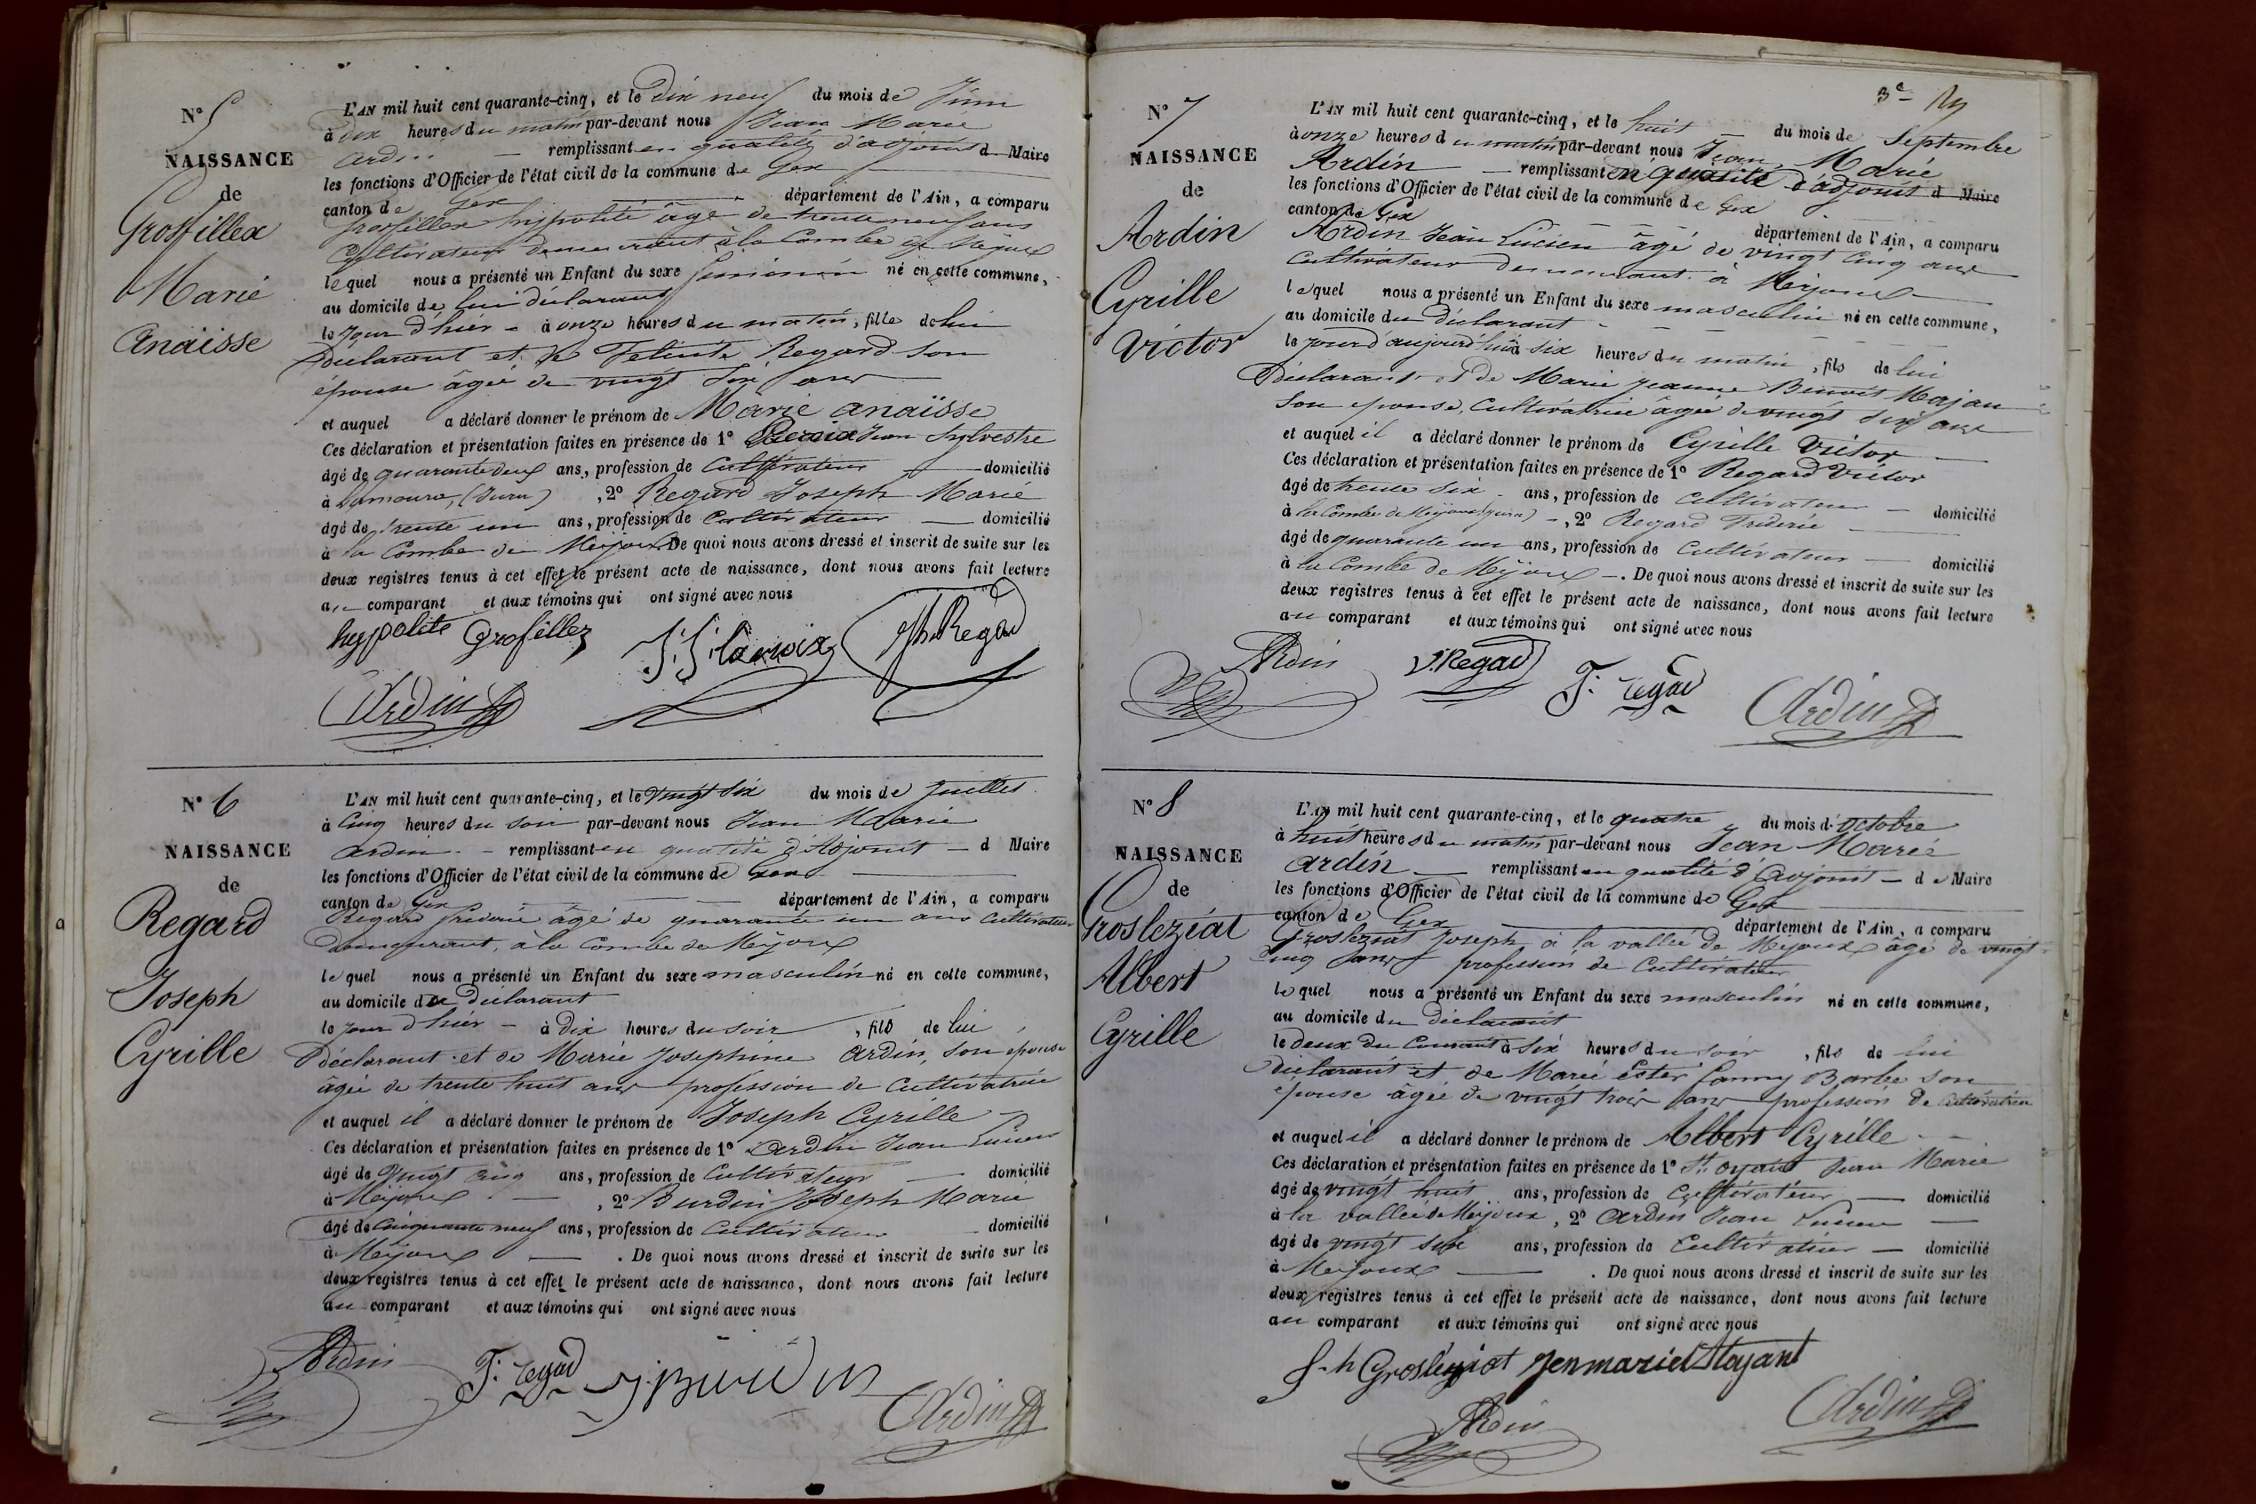 N° 5
NAISSANCE
de
Grosfillex
Marie
Anaïsse
L'AN mil huit cent quarante-cinq, et le dix neuf du mois de Juin
à dix heures du matin par-devant nous Jean Marie
Ardin remplissant en qualité d'adjoint d Maire
les fonctions d'Officier de l'état civil de la commune de Gex
canton de Gex département de l'Ain, a comparu
Grosfillex hippolite âgé de trente neuf ans
Cultivateur demeurant à la Combe de Mijoux
lequel nous a présenté un Enfant du sexe feminin né en cette commune,
au domicile de lui déclarant
le jour d'hier à onze heures du matin, fille de lui
Déclarant et de Felicité Regard son
épouse âgée de vingt six ans
et auquel a déclaré donner le prénom de Marie anaïsse
Ces déclaration et présentation faites en présence de 1° Jean Sylvestre
âgé de quarante deux ans, profession de Cultivateur domicilié
à Lamoura, (Jura), 2° Regard Joseph Marie
âgé de trente un ans, profession de Cultivateur domicilié
à la Combe de Mijoux De quoi nous avons dressé et inscrit de suite sur les
deux registres tenus à cet effet le présent acte de naissance, dont nous avons fait lecture
au comparant et aux témoins qui ont signé avec nous
hyppolite Grofillez J. S. Lacroix Jh Regad
Ardin
N° 6
NAISSANCE
de
Regard
Joseph
Cyrille
L'AN mil huit cent quarante-cinq, et le vingt six du mois de Juillet
à Cinq heures du soir par-devant nous Jean Marie
Ardin remplissant en qualité d'Adjoint d Maire
les fonctions d'Officier de l'état civil de la commune de Gex
canton de Gex département de l'Ain, a comparu
Regard frederic âgé de quarante un ans Cultivateur
Demeurant, à la Combe de Mijoux
lequel nous a présenté un Enfant du sexe masculin né en cette commune,
au domicile du Déclarant
le jour d'hier à Dix heures du soir, fils de lui
Déclarant et de Marie Josephine Ardin, son épouse
âgée de trente huit ans profession de Cultivatrice
et auquel il a déclaré donner le prénom de Joseph Cyrille
Ces déclaration et présentation faites en présence de 1° Ardin Jean Lucien
âgé de Vingt cinq ans, profession de Cultivateur domicilié
à Mijoux, 2° Burdin Joseph Marie
âgé de Cinquante neuf ans, profession de Cultivateur domicilié
à Mijoux. De quoi nous avons dressé et inscrit de suite sur les
deux registres tenus à cet effet le présent acte de naissance, dont nous avons fait lecture
au comparant et aux témoins qui ont signé avec nous
Ardin F. regad Ardin
3e
N° 7
NAISSANCE
de
Ardin
Cyrille
Victor
L'AN mil huit cent quarante-cinq, et le huit du mois de Septembre
à onze heures du matin par-devant nous Jean Marie
Ardin remplissant en qualité d'adjoint d Maire
les fonctions d'Officier de l'état civil de la commune de Gex
canton de Gex département de l'Ain, a comparu
Ardin Jean Lucien âgé de vingt cinq ans
Cultivateur demeurant à Mijoux
lequel nous a présenté un Enfant du sexe masculin né en cette commune,
au domicile du Déclarant
le jourd'aujourd'hui à six heures du matin, fils de lui
Déclarant et de Marie Jeanne Benoit
Son épouse, Cultivatrice âgée de vingt six ans
et auquel il a déclaré donner le prénom de Cyrille Victor
Ces déclaration et présentation faites en présence de 1° Regard Victor
âgé de trente six ans, profession de Cultivateur domicilié
à la Combe de Mijoux (Jura), 2° Regard Frederic
âgé de quarante un ans, profession de Cultivateur domicilié
à la Combe de Mijoux. De quoi nous avons dressé et inscrit de suite sur les
deux registres tenus à cet effet le présent acte de naissance, dont nous avons fait lecture
au comparant et aux témoins qui ont signé avec nous
Ardin V. Regad F. regad Ardin
N° 8
NAISSANCE
de
Grosleziat
Albert
Cyrille
L'AN mil huit cent quarante-cinq, et le quatre du mois d'Octobre
à huit heures du matin par-devant nous Jean Marie
Ardin remplissant en qualité d'Adjoint de Maire
les fonctions d'Officier de l'état civil de la commune de Gex
canton de Gex département de l'Ain, a comparu
Grosleziat Joseph à la vallée de Mijoux âgé de vingt
Cinq ans profession de Cultivateur
lequel nous a présenté un Enfant du sexe masculin né en cette commune,
au domicile du Déclarant
le deux du Courant à Six heures du soir, fils de lui
Déclarant et de Marie Ester fanny Barbe son
épouse âgée de vingt trois ans profession de Cultivatrice
et auquel il a déclaré donner le prénom de Albert Cyrille
Ces déclaration et présentation faites en présence de 1° St. Oyant Jean Marie
âgé de vingt huit ans, profession de Cultivateur domicilié
à la vallée de Mijoux, 2° Ardin Jean Lucien
âgé de vingt six ans, profession de Cultivateur domicilié
à Mijoux. De quoi nous avons dressé et inscrit de suite sur les
deux registres tenus à cet effet le présent acte de naissance, dont nous avons fait lecture
au comparant et aux témoins qui ont signé avec nous
J-h Grosleziat Jenmariet Stoyant
Ardin Ardin